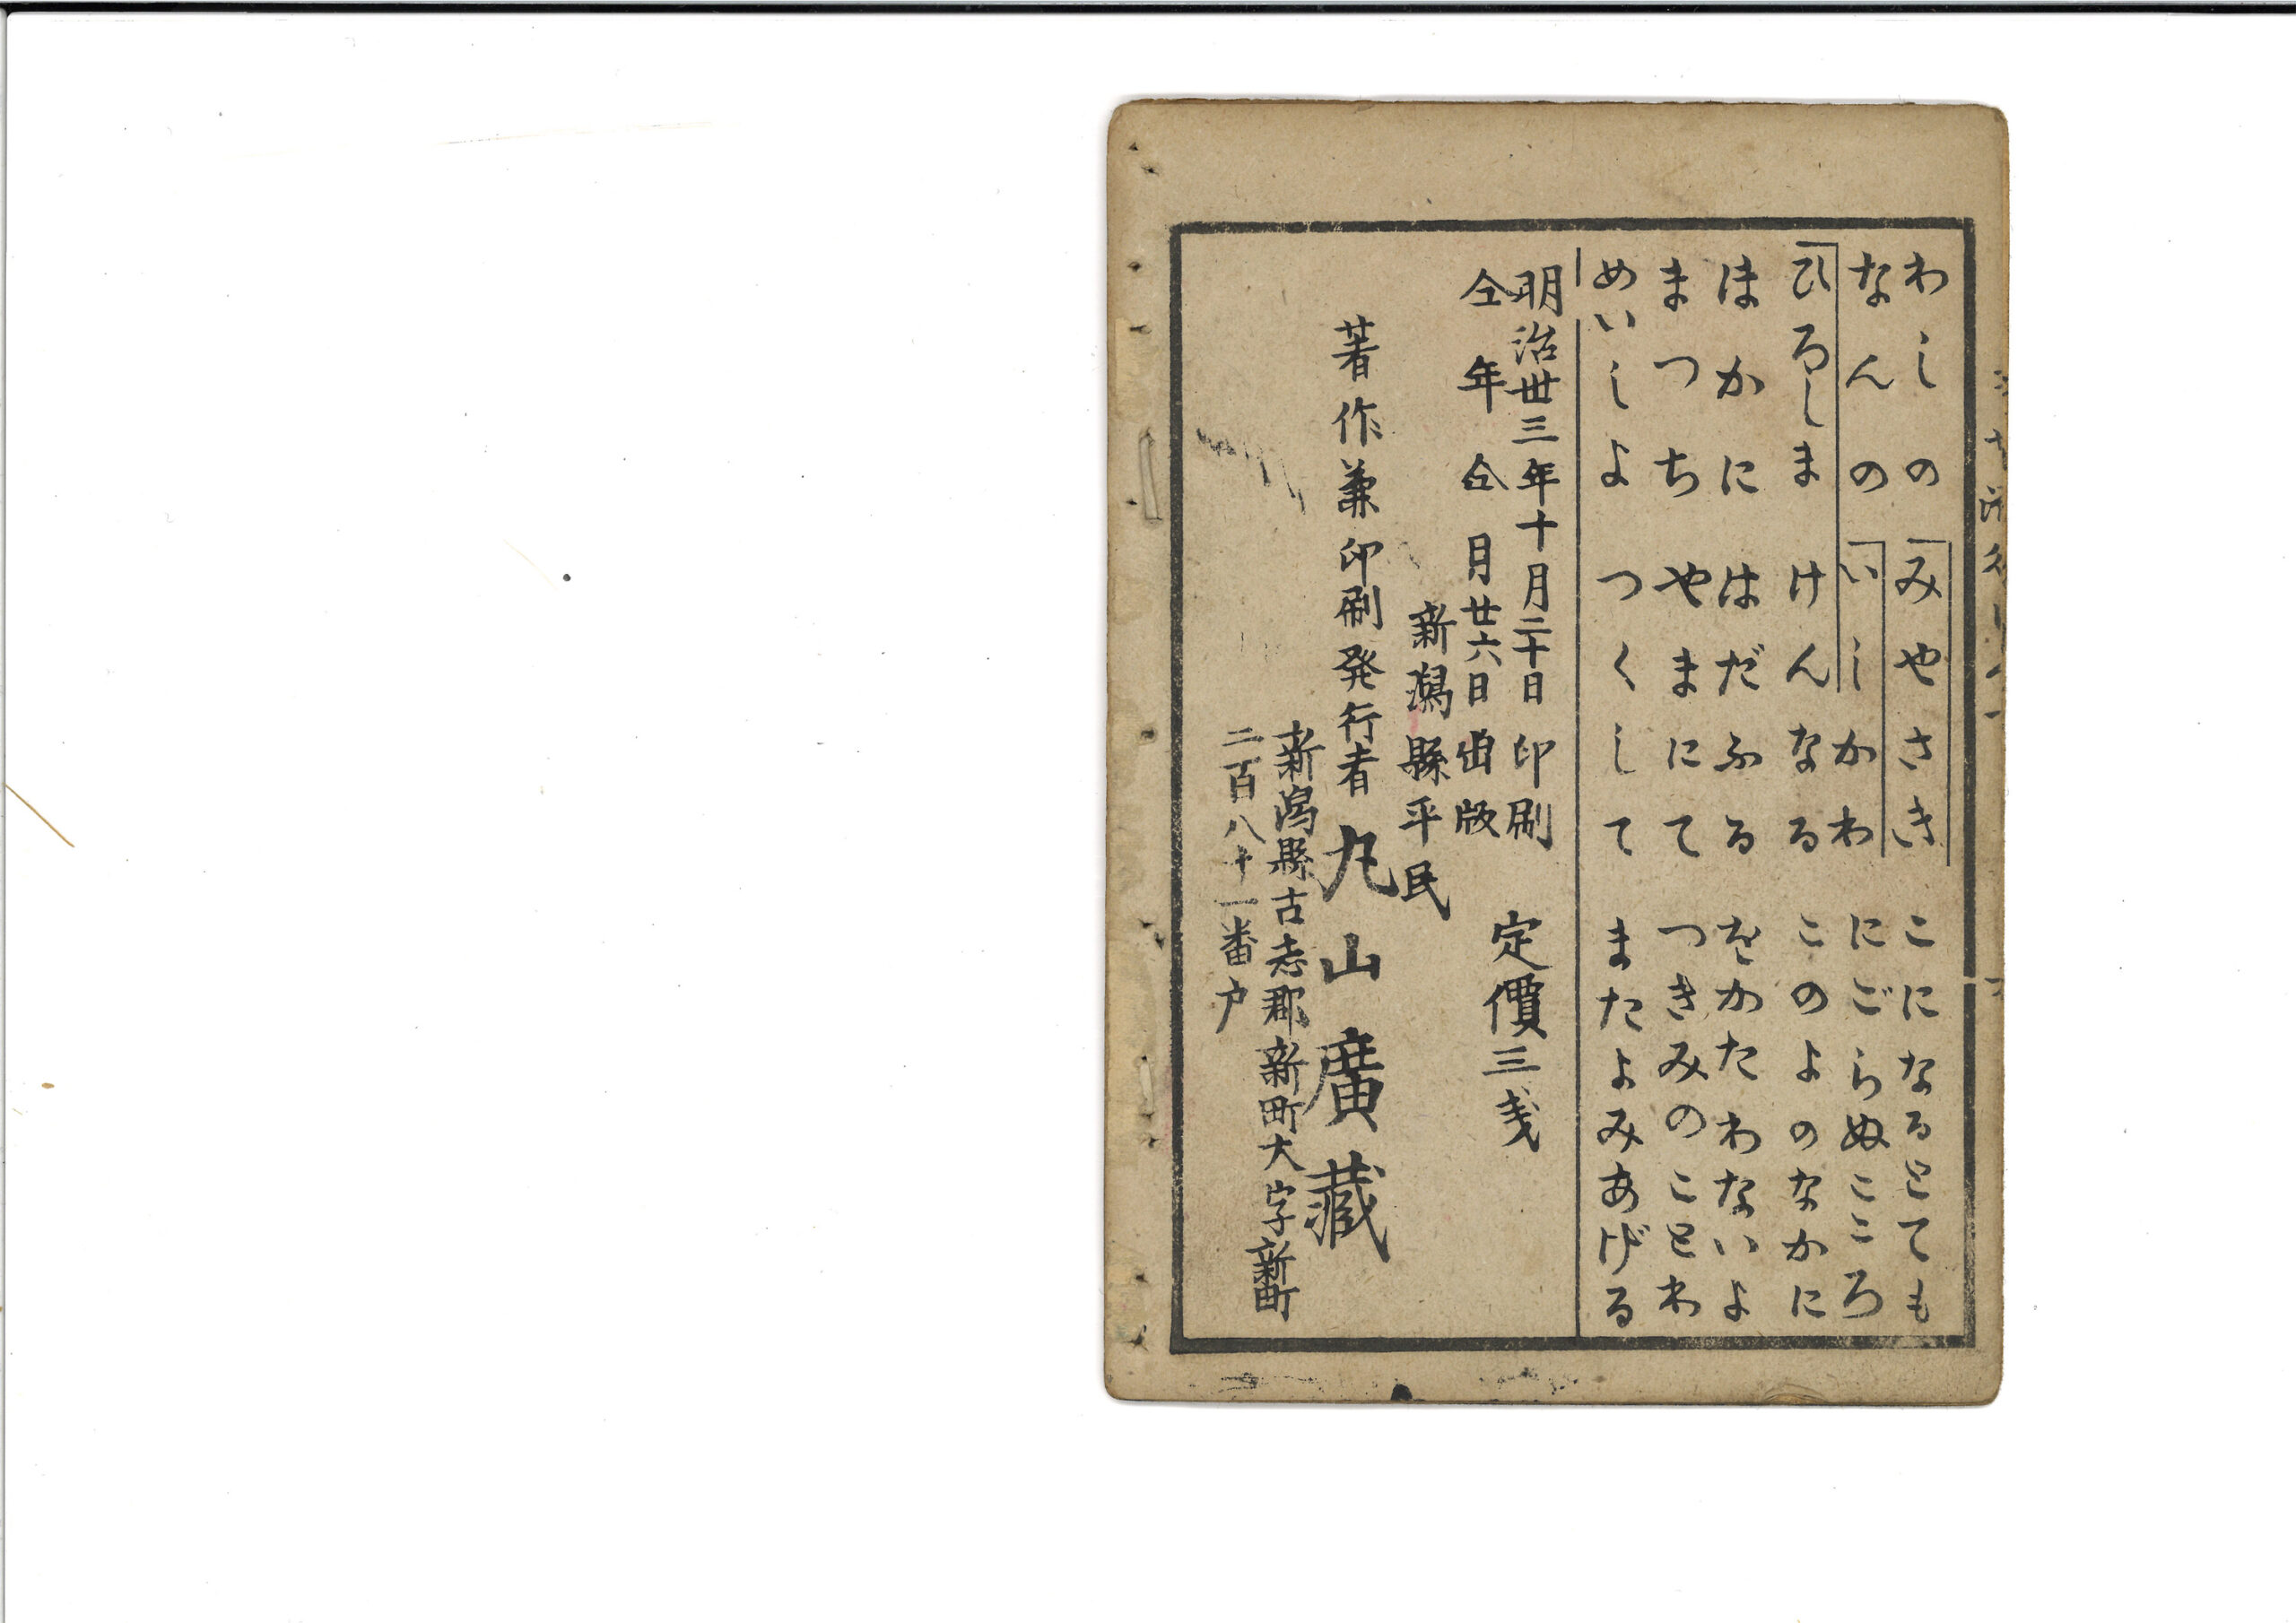 わしの みやさき こになるとても
なんの いしかわ にごらぬこころ
ひろしま けんなる このよのなかに
ほかに はだふる をかたわないよ
まつち やまにて つきみのことわ
めいしよ つくして またよみあげる
明治丗三年十月二十日印刷
仝年仝月廿六日出版
定價三戔
新潟縣平民
著作兼印刷発行者 丸山廣藏
新潟縣古志郡新町大字新町
二百八十一番戸